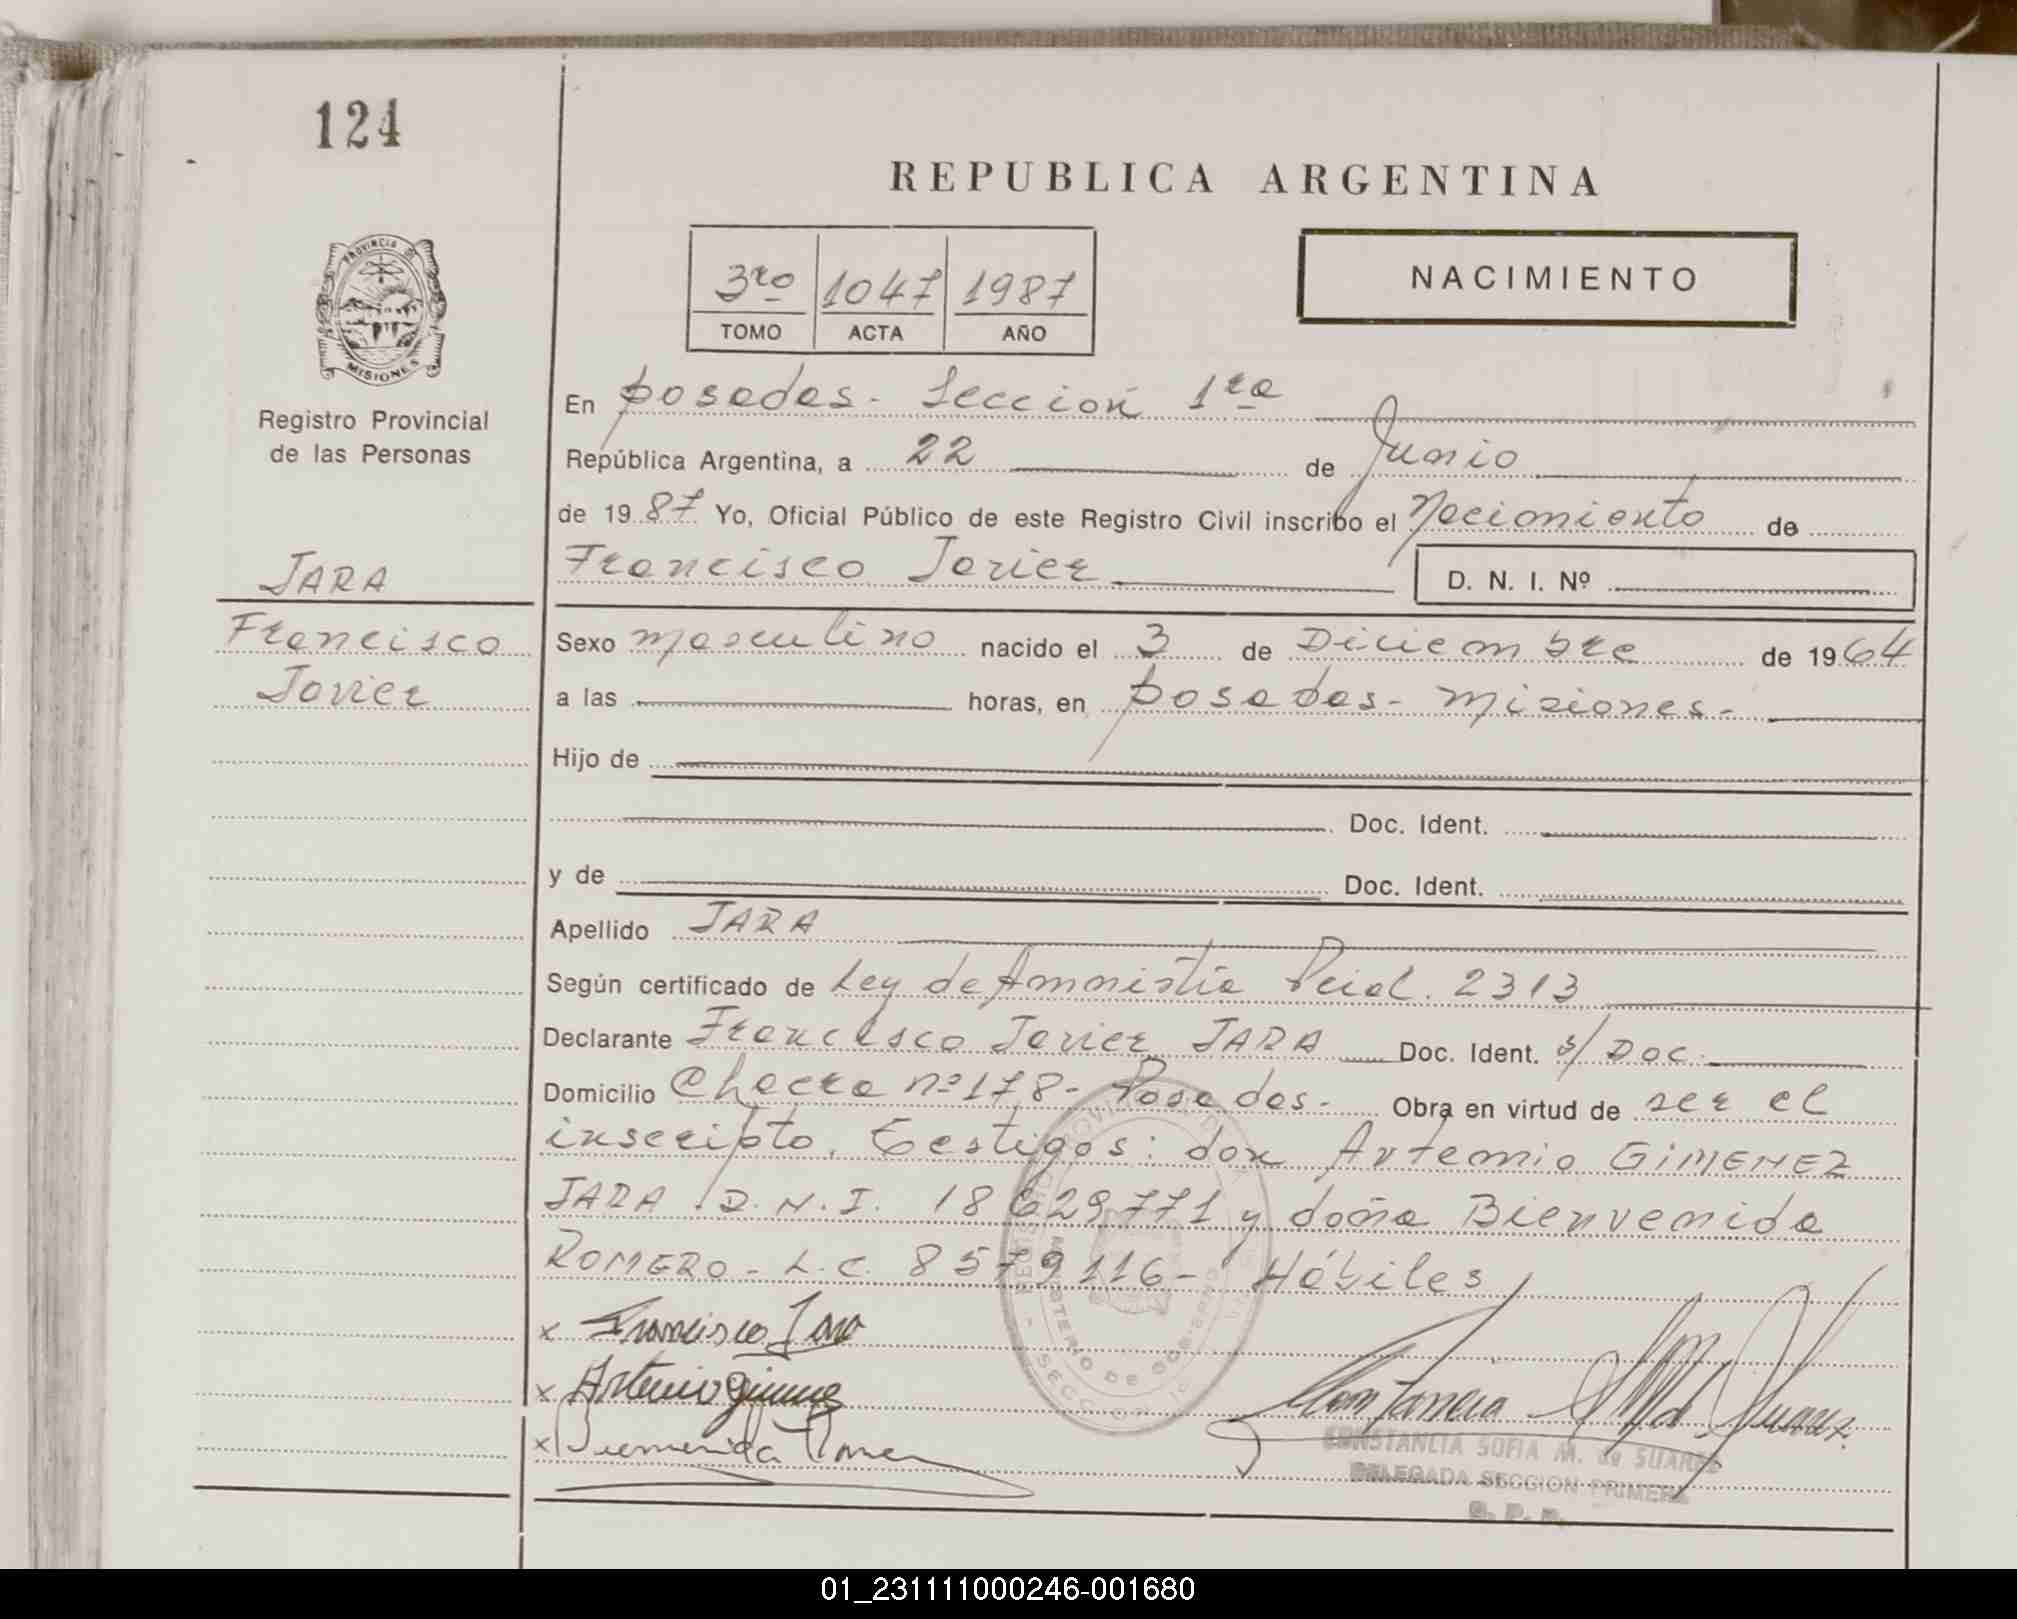 124
REPUBLICA ARGENTINA
PROVINCIA DE
MISIONES
3ro 1047 1987
TOMO ACTA AÑO
NACIMIENTO
Registro Provincial
de las Personas
En posadas - Sección 1ra
República Argentina, a 22 de Junio
de 1987 Yo, Oficial Público de este Registro Civil inscribo el Nacimiento de
JARA
Francisco Javier D. N. I. Nº
Francisco
Javier
Sexo masculino nacido el 3 de Diciembre de 1964
a las horas, en posadas - Misiones -
Hijo de
Doc. Ident.
y de Doc. Ident.
Apellido JARA
Según certificado de Ley de Amnistía Pcial. 2313
Declarante Francisco Javier JARA Doc. Ident. s/ Doc.
Domicilio Chacra nº 178 - Posadas - Obra en virtud de ser el
inscripto. Testigos: don Artemio GIMENEZ
JARA D.N.I. 18629771 y doña Bienvenida
ROMERO - L.C. 8579116 - Hábiles
x Francisco Jara
x Artemio Gimenez
x Bienvenida Romero
CONSTANCIA SOFIA M. de SUAREZ
DELEGADA SECCION PRIMERA
01_231111000246-001680